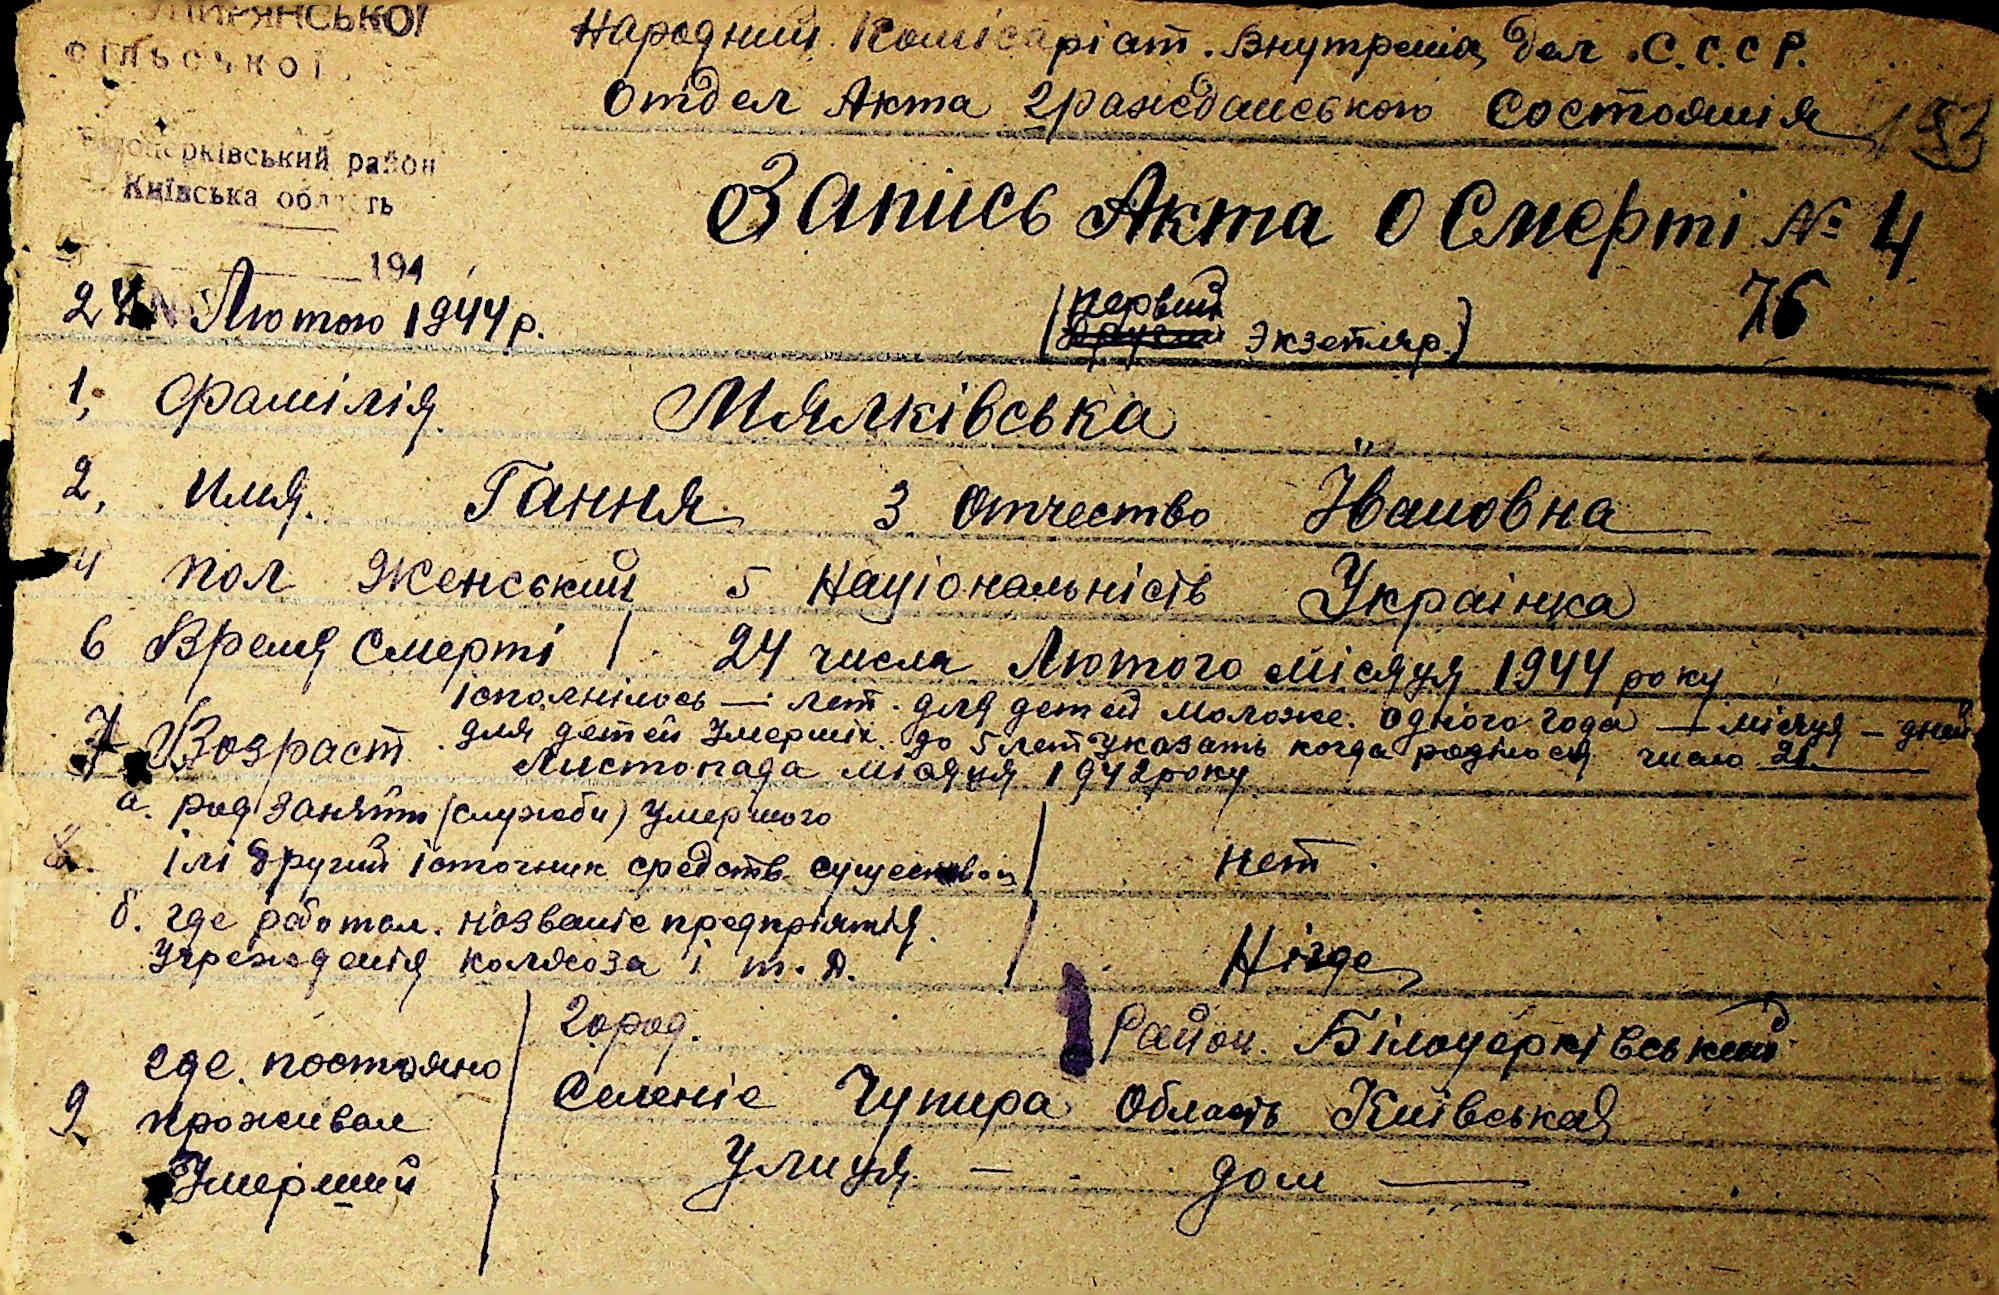 ЧУПИРЯНСЬКОЇ
СІЛЬСЬКОЇ
Білоцерківський район
Київська область
194
Народний Комісаріат. Внутренія дел С.С.С Р.
Отдел Акта гражданського состоянія
Запись Акта о Смерті № 4
76
24 Лютого 1944 р.
(первий
другий экземпляр.)
1, Фамілія. Мялківська
2, имя. Гання 3 Отчество Івановна
4 пол Женський 5 Національність Українка
6 Время Смерті 24 числа Лютого місяця 1944 року
7 Возраст
ісполнілось — лет. для детей моложе. одного года — місяця — дней
для детей умерших. до 5 лет указать когда родился число 21
Листопада місяця 1942 року
8. а. род заняти (служби) умершого
ілі другий істочник средств существов
нет
б. где работал. названіе предпріятія.
учрежденія колхоза і т. д.
Нігде
9 где постояно
проживал
Умерший
город. Район. Білоцерківський
Селеніе Чупира Область Київська
Улиця. — дом —